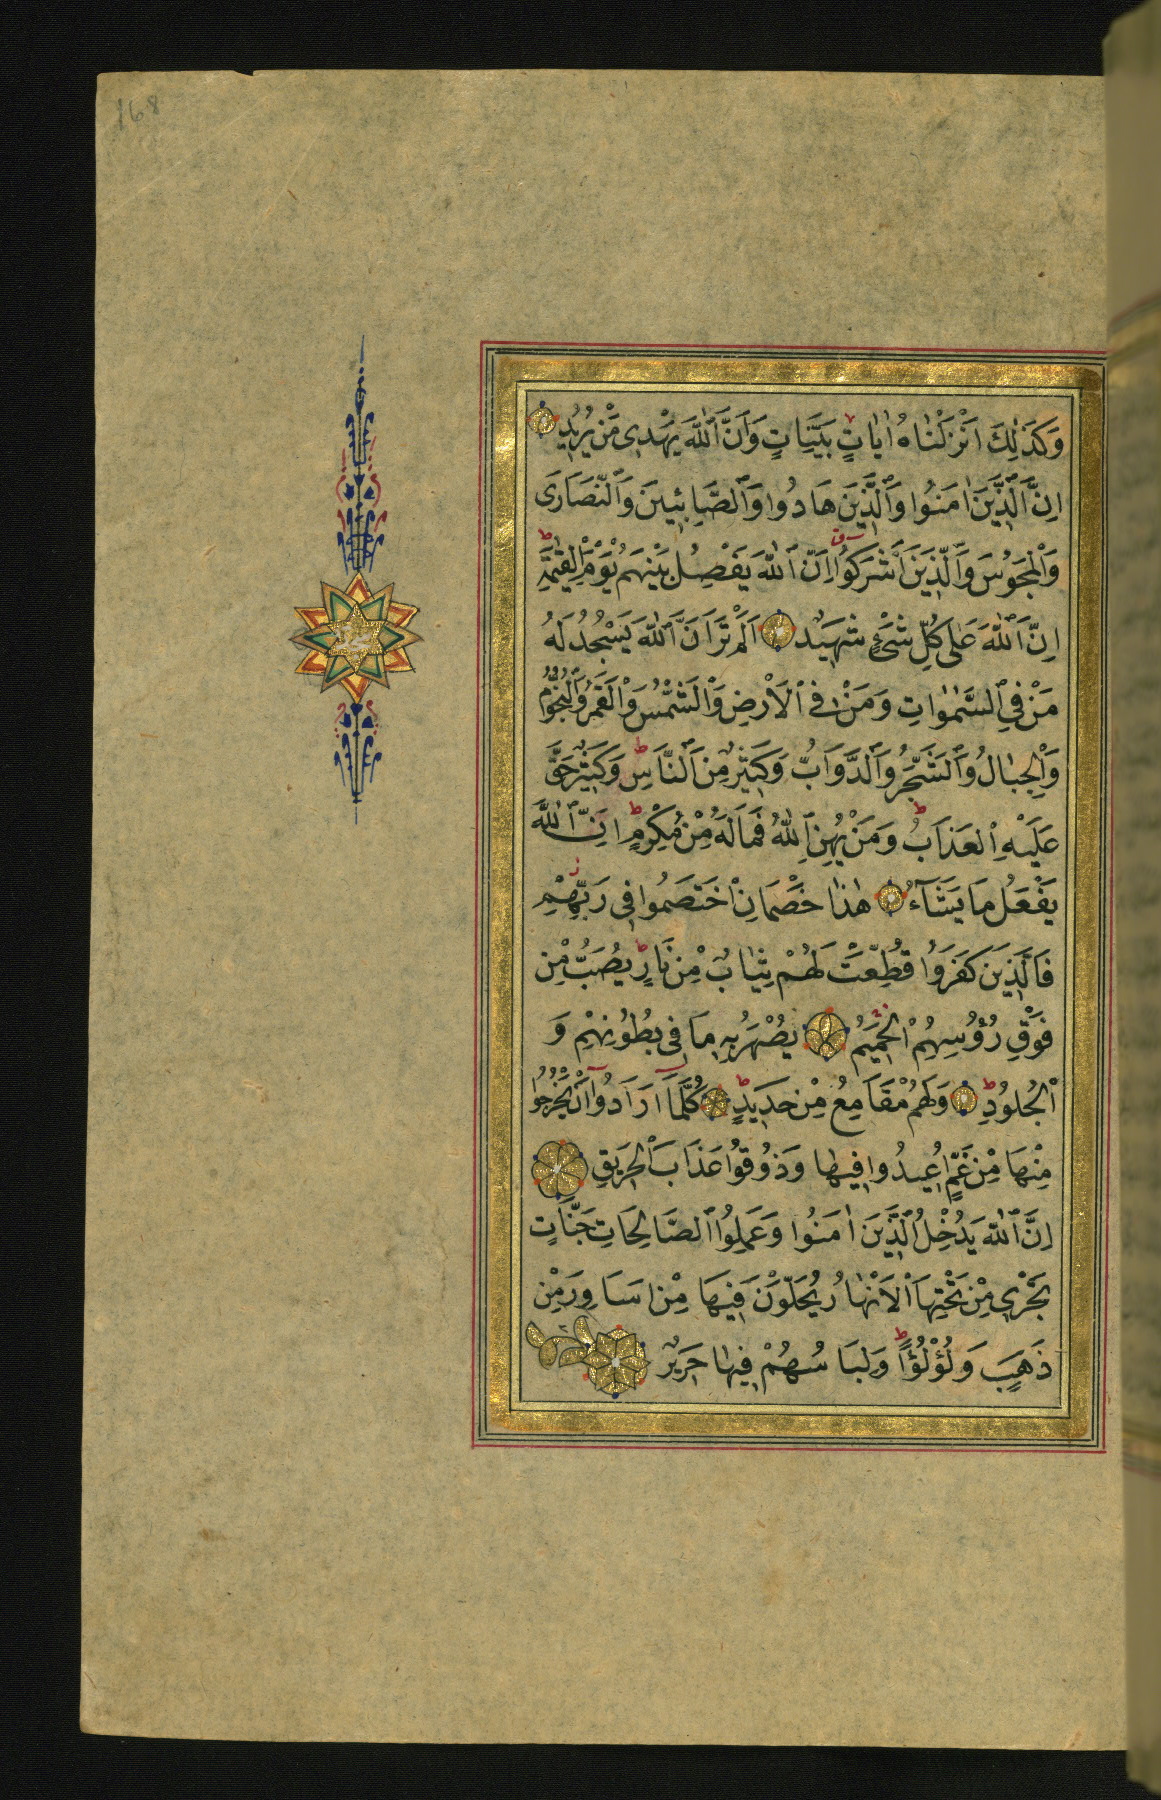 168
وَكَذٰلِكَ اَنْزَلْنَاهُ اٰيَاتٍ بَيِّنَاتٍ وَاَنَّ اللّٰهَ يَهْدِى مَنْ يُرِيدُ
اِنَّ الَّذِينَ اٰمَنُوا وَالَّذِينَ هَادُوا وَالصَّابِئِينَ وَالنَّصَارَى
وَالْمَجُوسَ وَالَّذِينَ اَشْرَكُوا اِنَّ اللّٰهَ يَفْصِلُ بَيْنَهُمْ يَوْمَ الْقِيٰمَةِ
اِنَّ اللّٰهَ عَلٰى كُلِّ شَىْءٍ شَهِيدٌ اَلَمْ تَرَ اَنَّ اللّٰهَ يَسْجُدُ لَهُ
مَنْ فِى السَّمٰوَاتِ وَمَنْ فِى الْاَرْضِ وَالشَّمْسُ وَالْقَمَرُ وَالنُّجُومُ
وَالْجِبَالُ وَالشَّجَرُ وَالدَّوَابُّ وَكَثِيرٌ مِنَ النَّاسِ وَكَثِيرٌ حَقَّ
عَلَيْهِ الْعَذَابُ وَمَنْ يُهِنِ اللّٰهُ فَمَا لَهُ مِنْ مُكْرِمٍ اِنَّ اللّٰهَ
يَفْعَلُ مَا يَشَاءُ هٰذَانِ خَصْمَانِ اخْتَصَمُوا فِى رَبِّهِمْ
فَالَّذِينَ كَفَرُوا قُطِّعَتْ لَهُمْ ثِيَابٌ مِنْ نَارٍ يُصَبُّ مِنْ
فَوْقِ رُؤُسِهِمُ الْحَمِيمُ يُصْهَرُ بِهِ مَا فِى بُطُونِهِمْ وَ
الْجُلُودُ وَلَهُمْ مَقَامِعُ مِنْ حَدِيدٍ كُلَّمَا اَرَادُوا اَنْ يَخْرُجُوا
مِنْهَا مِنْ غَمٍّ اُعِيدُوا فِيهَا وَذُوقُوا عَذَابَ الْحَرِيقِ
اِنَّ اللّٰهَ يُدْخِلُ الَّذِينَ اٰمَنُوا وَعَمِلُوا الصَّالِحَاتِ جَنَّاتٍ
تَجْرِى مِنْ تَحْتِهَا الْاَنْهَارُ يُحَلَّوْنَ فِيهَا مِنْ اَسَاوِرَ مِنْ
ذَهَبٍ وَلُؤْلُؤًا وَلِبَاسُهُمْ فِيهَا حَرِيرٌ